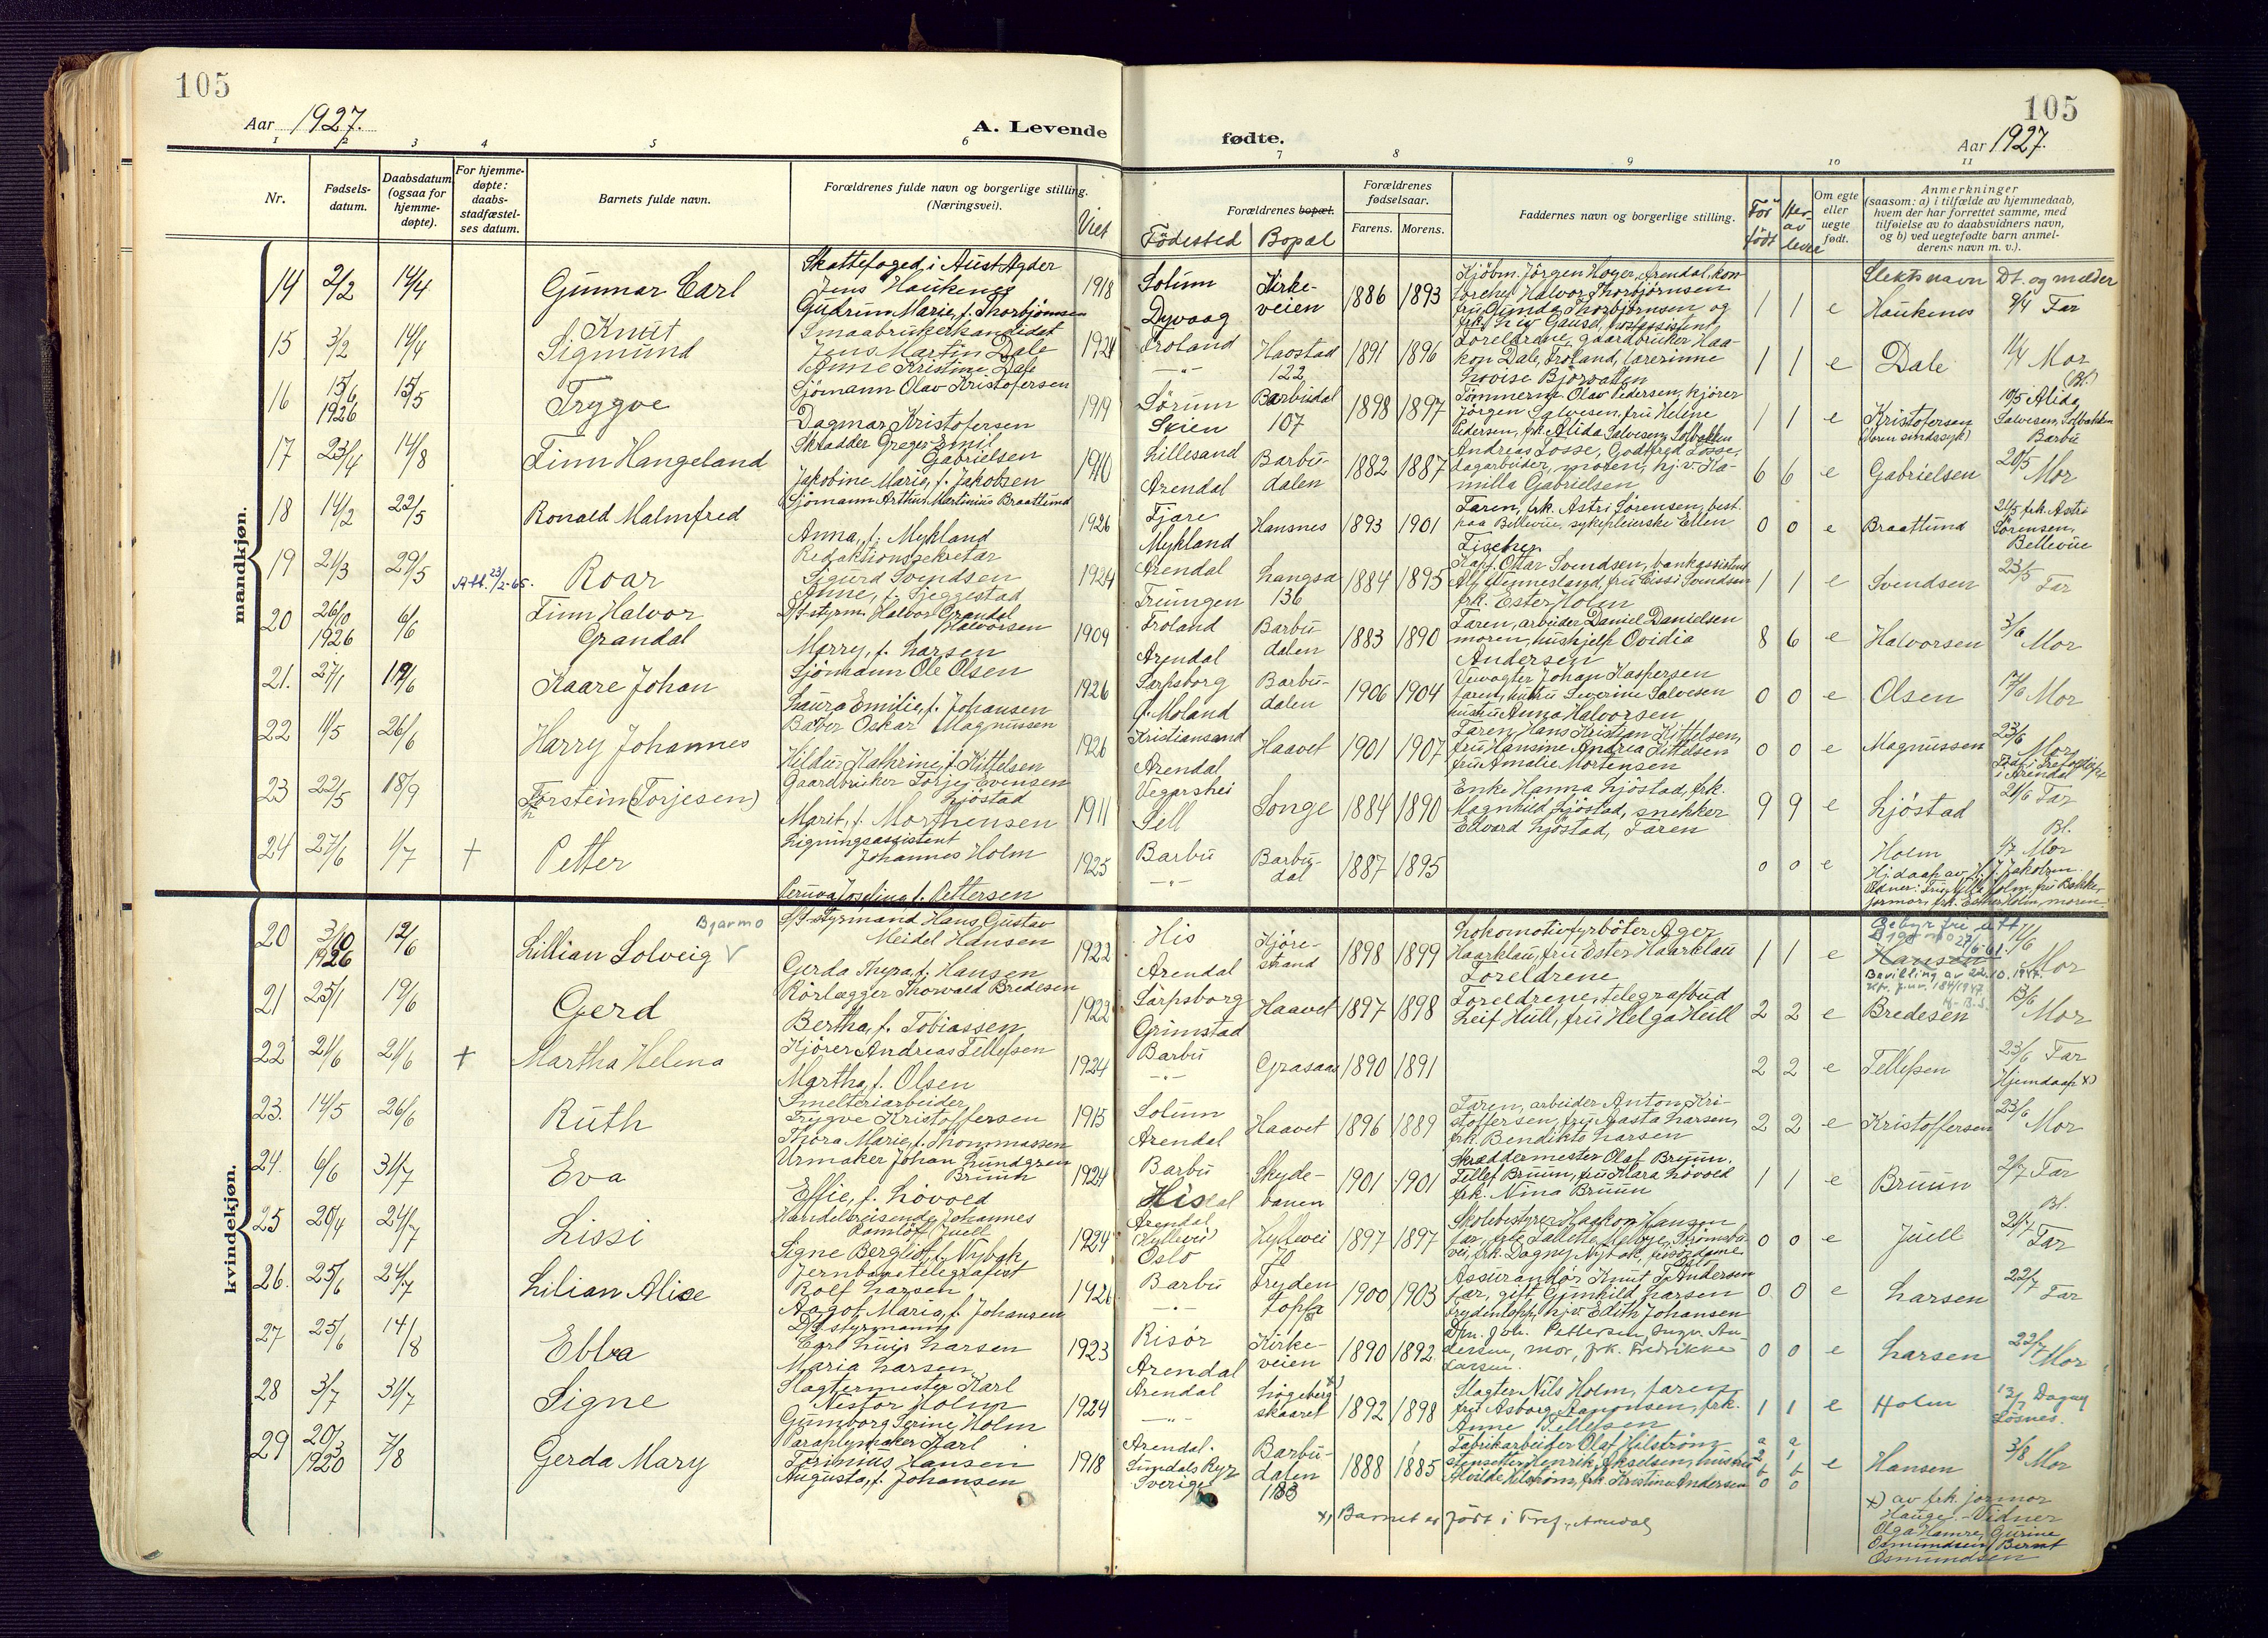 105
Aar 1927.
A. Levende
fødte.
105
Aar 1927.
1 2 3 4 5 6 7 8 9 10 11
Nr.
Fødsels-
datum.
Daabsdatum
(ogsaa for
hjemme-
døpte).
For hjemme-
døpte:
daabs-
stadfæstel-
ses datum.
Barnets fulde navn.
Forældrenes fulde navn og borgerlige stilling.
(Næringsvei).
Viet
Forældrenes bopæl.
Födested
Bopæl
Forældrenes
fødselsaar.
Farens.
Morens.
Faddernes navn og borgerlige stilling.
Før
født
Her-
av
leve
Om egte
eller
uegte
født.
Anmerkninger
(saasom: a) i tilfælde av hjemmedaab,
hvem der har forrettet samme, med
tilføielse av to daabsvidners navn,
og b) ved uegtefødte barn anmel-
derens navn m. v.).
Slektsnavn
Dt. og melder
mandkjøn.
14 2/2 14/4
Gunnar Carl
Skattefoged i Aust Agder
Jens Haukenes
Gudrun Marie, f. Thorbjörnsen
1918
Solum
Dyvaag
Kirke-
veien
1886 1893
Kjöbm. Jörgen Hoyer, Arendal, kon
torchef Halvor Thorbjørnsen
fru Gunda Thorbjørnsen og
frk. Liv Gausel, postassistent
1 1 e
Haukenes
9/4 Far
15 3/2 14/4
Knut
Sigmund
Smaabrukerkandidat
Jens Martin Dale
Anne Kristine Dale
1924
Froland
-"-
Haostad
122
1891 1896
Foreldrene, gaardbruker Haa-
kon Dale, Froland, lærerinne
Lovise Björvatten
1 1 e
Dale
11/4 Mor
(Bl.)
16 15/6 1926 15/5
Trygve
Sjömann Olav Kristofersen
Dagmar Kristofersen
1919
Sörum
Skien
Barbudal
107
1898 1897
Tömmerm. Olav Pedersen, kjörer
Jörgen Salvesen, fru Helene
Pedersen, frk. Alida Salvesen, Solbakken
1 1 e
Kristofersen
(Moren sindssyk)
10/5 Alida
Salvesen, Solbakken
Barbu
17 23/4 14/8
Finn Hangeland
Skradder Greger Emil
Gabrielsen
Jakobine Marie, f. Jakobsen
1910
Lillesand
Arendal
Barbu-
dalen
1882 1887
Andreas Fosse, Godtfred Fosse,
dagarbeider, moren, hj.v. Ka-
milla Gabrielsen
6 6 e
Gabrielsen
20/5
Mor
18 14/2 22/5
Ronald Malmfred
Sjömann Arthur Martinius Braatlund
Anna, f. Mykland
1926
Fjære
Mykland
Hansnes
1893 1901
Faren, frk. Astri Sörensen, best.
paa Bellevue, sykepleierske Ellen
Fischer
0 0 e
Braatlund
21/5 frk. Astri
Sörensen,
Bellevue
19 21/3 29/5
Att. 23/2-65.
Roar
Redaktionssekretær
Sigurd Svendsen
Anne, f. Seggestad
1924
Arendal
Treungen
Langsæ
136
1884 1895
Kapt. Ottar Svendsen, bankassistent
Alf Hennesland, fru Cissi Svendsen
frk. Ester Holm
1 1 e
Svendsen
23/5
Far
20 26/10 1926 6/6
Finn Halvor
Grandal
D/S styrm. Halvor Grandal
Halvorsen
Marry, f. Larsen
1909
Froland
Arendal
Barbu
dalen
1883 1890
Faren, arbeider Daniel Danielsen
moren, hushjelp Ovidia
Andersen
8 6 e
Halvorsen
3/6
Mor
21. 27/1 19/6
Kaare Johan
Sjömann Ole Olsen
Laura Emilie, f. Johansen
1926
Sarpsborg
Ö. Moland
Barbu-
dalen
1906 1904
Veivogter Johan Kaspersen
faren, hustru Severine Salvesen
hustru Anna Halvorsen
0 0 e
Olsen
17/6 Mor
22 11/5 26/6
Harry Johannes
Baker Oskar Magnussen
Hildur Kathrine, f. Kittelsen
1926
Kristiansand
Arendal
Haavet
1901 1907
Faren, Hans Kristian Kittelsen,
fru Hansine Andrea Kittelsen
fru Amalie Mortensen
0 0 e
Magnussen
23/6
Mor
i Arendal
23 22/5 18/9
Torstein (Torjesen)
h
Gaardbruker Torjej Evensen
Ljöstad
Marit, f. Morthensen
1911
Vegarshei
Sell
Songe
1884 1890
Enke Hanna Ljöstad, frk.
Magnhild Ljöstad, snekker
Edvard Ljöstad, Faren
9 9 e
Ljöstad
21/6 Far
Bl.
24 27/6 1/7 †
Petter
Ligningsassistent
Johannes Holm
Peruva Josefine f. Pettersen
1925
Barbu
-"-
Barbu-
dal
1887 1895
0 0 e
Holm
1/7 Mor
Hj.daap av H. J. Jakobsen.
jormor, frk. Esther Holm, moren
kvindekjøn.
20 3/10 1926 12/6
Bjarmo
Lillian Solveig V
S/S styrmand Hans Gustav
Meidel Hansen
Gerda Thyra, f. Hansen
1922
His
Arendal
Kjöre-
strand
1898 1899
Lokomotivfyrböter Ager
Haarklau, fru Ester Haarklau
Foreldrene
1 1 e
Gebyr fri att
27/6-61.
Hansen
Bevilling av 22.10.1947.
11/6
Mor
21 25/1 19/6
Gerd
Rörlægger Thorvald Bredesen
Bertha, f. Tobiassen
1922
Sarpsborg
Grimstad
Haavet
1897 1898
Foreldrene, telegrafbud
Leif Hull, fru Helga Hull
2 2 e
Bredesen
13/6
Mor
22 21/6 21/6 †
Martha Helena
Kjörer Andreas Tellefsen
Martha, f. Olsen
1924
Barbu
-"-
Græsaas
1890 1891
2 2 e
Tellefsen
23/6 Far
Hjemdaap x)
23. 14/5 26/6
Ruth
Smelteriarbeider
Trygve Kristoffersen
Thora Marie, f. Thommassen
1915
Solum
Arendal
Haavet
1896 1889
Faren, arbeider Anton Kri-
stoffersen, fru Aasta Larsen,
frk. Bendikte Larsen
2 2 e
Kristoffersen
23/6
Mor
24. 6/6 31/7
Eva
Urmaker Johan Lundgren
Bruun
Effie, f. Lövold
1924
Barbu
Hisdal
Skyde-
banen
1901 1901
Skræddermester Olaf Bruun.
Tellef Bruun, fru Klara Lövold
frk. Nina Bruun
1 1 e
Bruun
2/7 Far
Bl.
25 20/4 24/7
Lissi
Handelsreisende Johannes
Ramlöf Juell
Signe Bergliot, f. Nybak
1924
Arendal
(Hyllevei)
Oslo
Hyllevei
70
1897 1897
Skolebestyrer Haakon Hansen
0 0 e
Juell
21/7
Far
26. 25/6 24/7
Lilian Alice
Jernbanetelegrafist
Rolf Larsen
Aagot Marie, f. Johansen
1926
Barbu
-"-
Fryden
topp
1900 1903
Assurandör Knut T. Andersen
far, gift Gunhild Larsen
Frydentopp, hj.v. Edith Johansen
0 0 e
Larsen
22/7
Far
27 25/6 14/8
Ebba
D/S styrmann
Carl Luis Larsen
Maria Larsen
1923
Risör
Arendal
Kirke-
veien
1890 1892
dersen, mor, frk. Fredrikke
Larsen.
0 0 e
Larsen
22/7
Mor
28 3/7 31/7
Signe
Slagtermester Karl
Nestor Holm
Gunnborg Serine Holm
1924
Arendal
-"-
Högeberg x)
skaaret
1892 1898
Slagter Nils Holm, faren
fru Asborg Aanonsen, frk.
Anne Tellefsen
1 1 e
Holm
13/7 Dagny
Løsnes.
29 20/3 1920 7/8
Gerda Mary
Paraplymaker Karl
Ferinius Hansen
Augusta, f. Johansen
1918
Arendal.
Sundals Ryr
Sverige
Barbu-
dalen
1888 1885
Fabrikarbeider Olaf Hilström
stensetter Henrik Akselsen, hustru
Alvilde Hilström, frk. Kristine Andersen
a a
2 1
b b
0 0
e
Hansen
3/8 Mor
x) Barnet er født i Tref., Arendal
x) av frk. jormor
Hauge. - Vidner
Olga Hamre, Gurine
Osmundsen, Bernt
Osmundsen